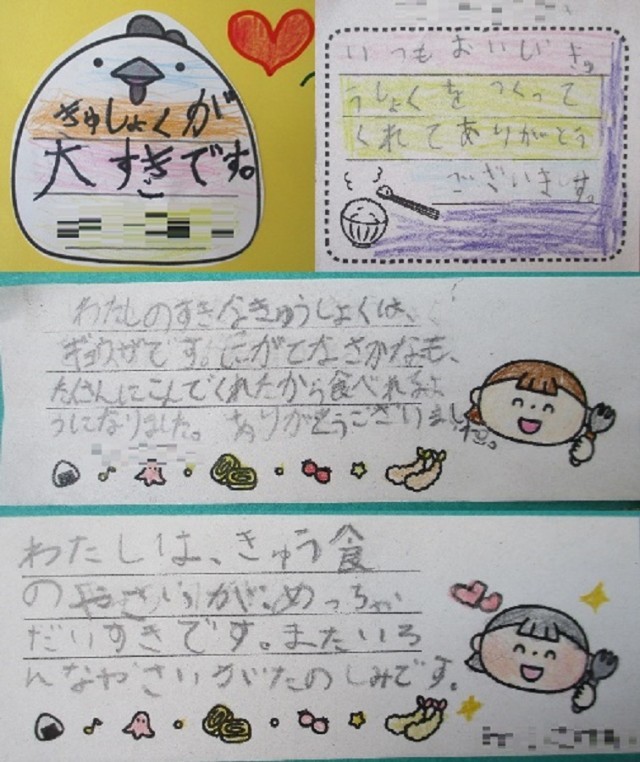 きゅしょくが
大すきです。
いつもおいしいき
うしょくをつくって
くれてありがとう
ございます。
わたしのすきなきゅうしょくは、
ギョウザです。にがてなさかなも、
たくさんにこんでくれたから食べれるよ
うになりました。ありがとうございました。
わたしは、きゅう食
のやさいが、めっちゃ
だいすきです。またいろ
んなやさいがたのしみです。